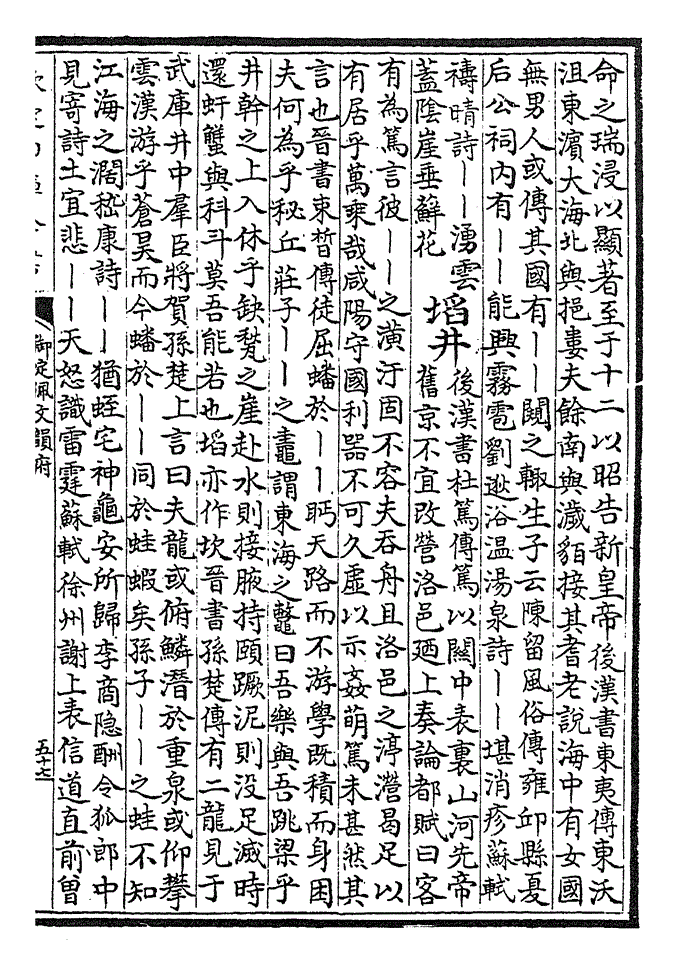 命之瑞浸以顯著至于十二以昭告新皇帝後漢書東夷傳東沃
沮東濱大海北與挹婁夫餘南與濊貊接其耆老說海中有女國
無男人或傳其國有——闚之輙生子云陳留風俗傳雍邱縣夏
后公祠内有——能興霧雹劉逖浴温湯泉詩——堪消疹蘇軾
禱晴詩——湧雲
蓋陰崖垂蘚花
埳井
後漢書杜篤傳篤以闗中表裏山河先帝
舊京不宜改營洛邑廼上奏論都賦曰客
有為篤言彼——之潢汙固不容夫吞舟且洛邑之渟瀯曷足以
有居乎萬乘哉咸陽守國利器不可久虛以示姦萌篤未甚然其
言也晉書束晳傳徒屈蟠於——眄天路而不游學既積而身困
夫何為乎秘丘莊子——之鼃謂東海之鼈曰吾樂與吾跳梁乎
井幹之上入休乎缺甃之崖赴水則接腋持頤蹶泥則没足滅跗
還虷蟹與科斗莫吾能若也埳亦作坎晉書孫楚傳有二龍見于
武庫井中羣臣將賀孫楚上言曰夫龍或俯鱗潛於重泉或仰攀
雲漢游乎蒼昊而今蟠於——同於蛙蝦矣孫子——之蛙不知
江海之濶嵇康詩——猶蛭宅神龜安所歸李商隐酬令狐郎中
見寄詩土宜悲——天怒識雷霆蘇軾徐州謝上表信道直前曾
御定佩文韻府
五十七